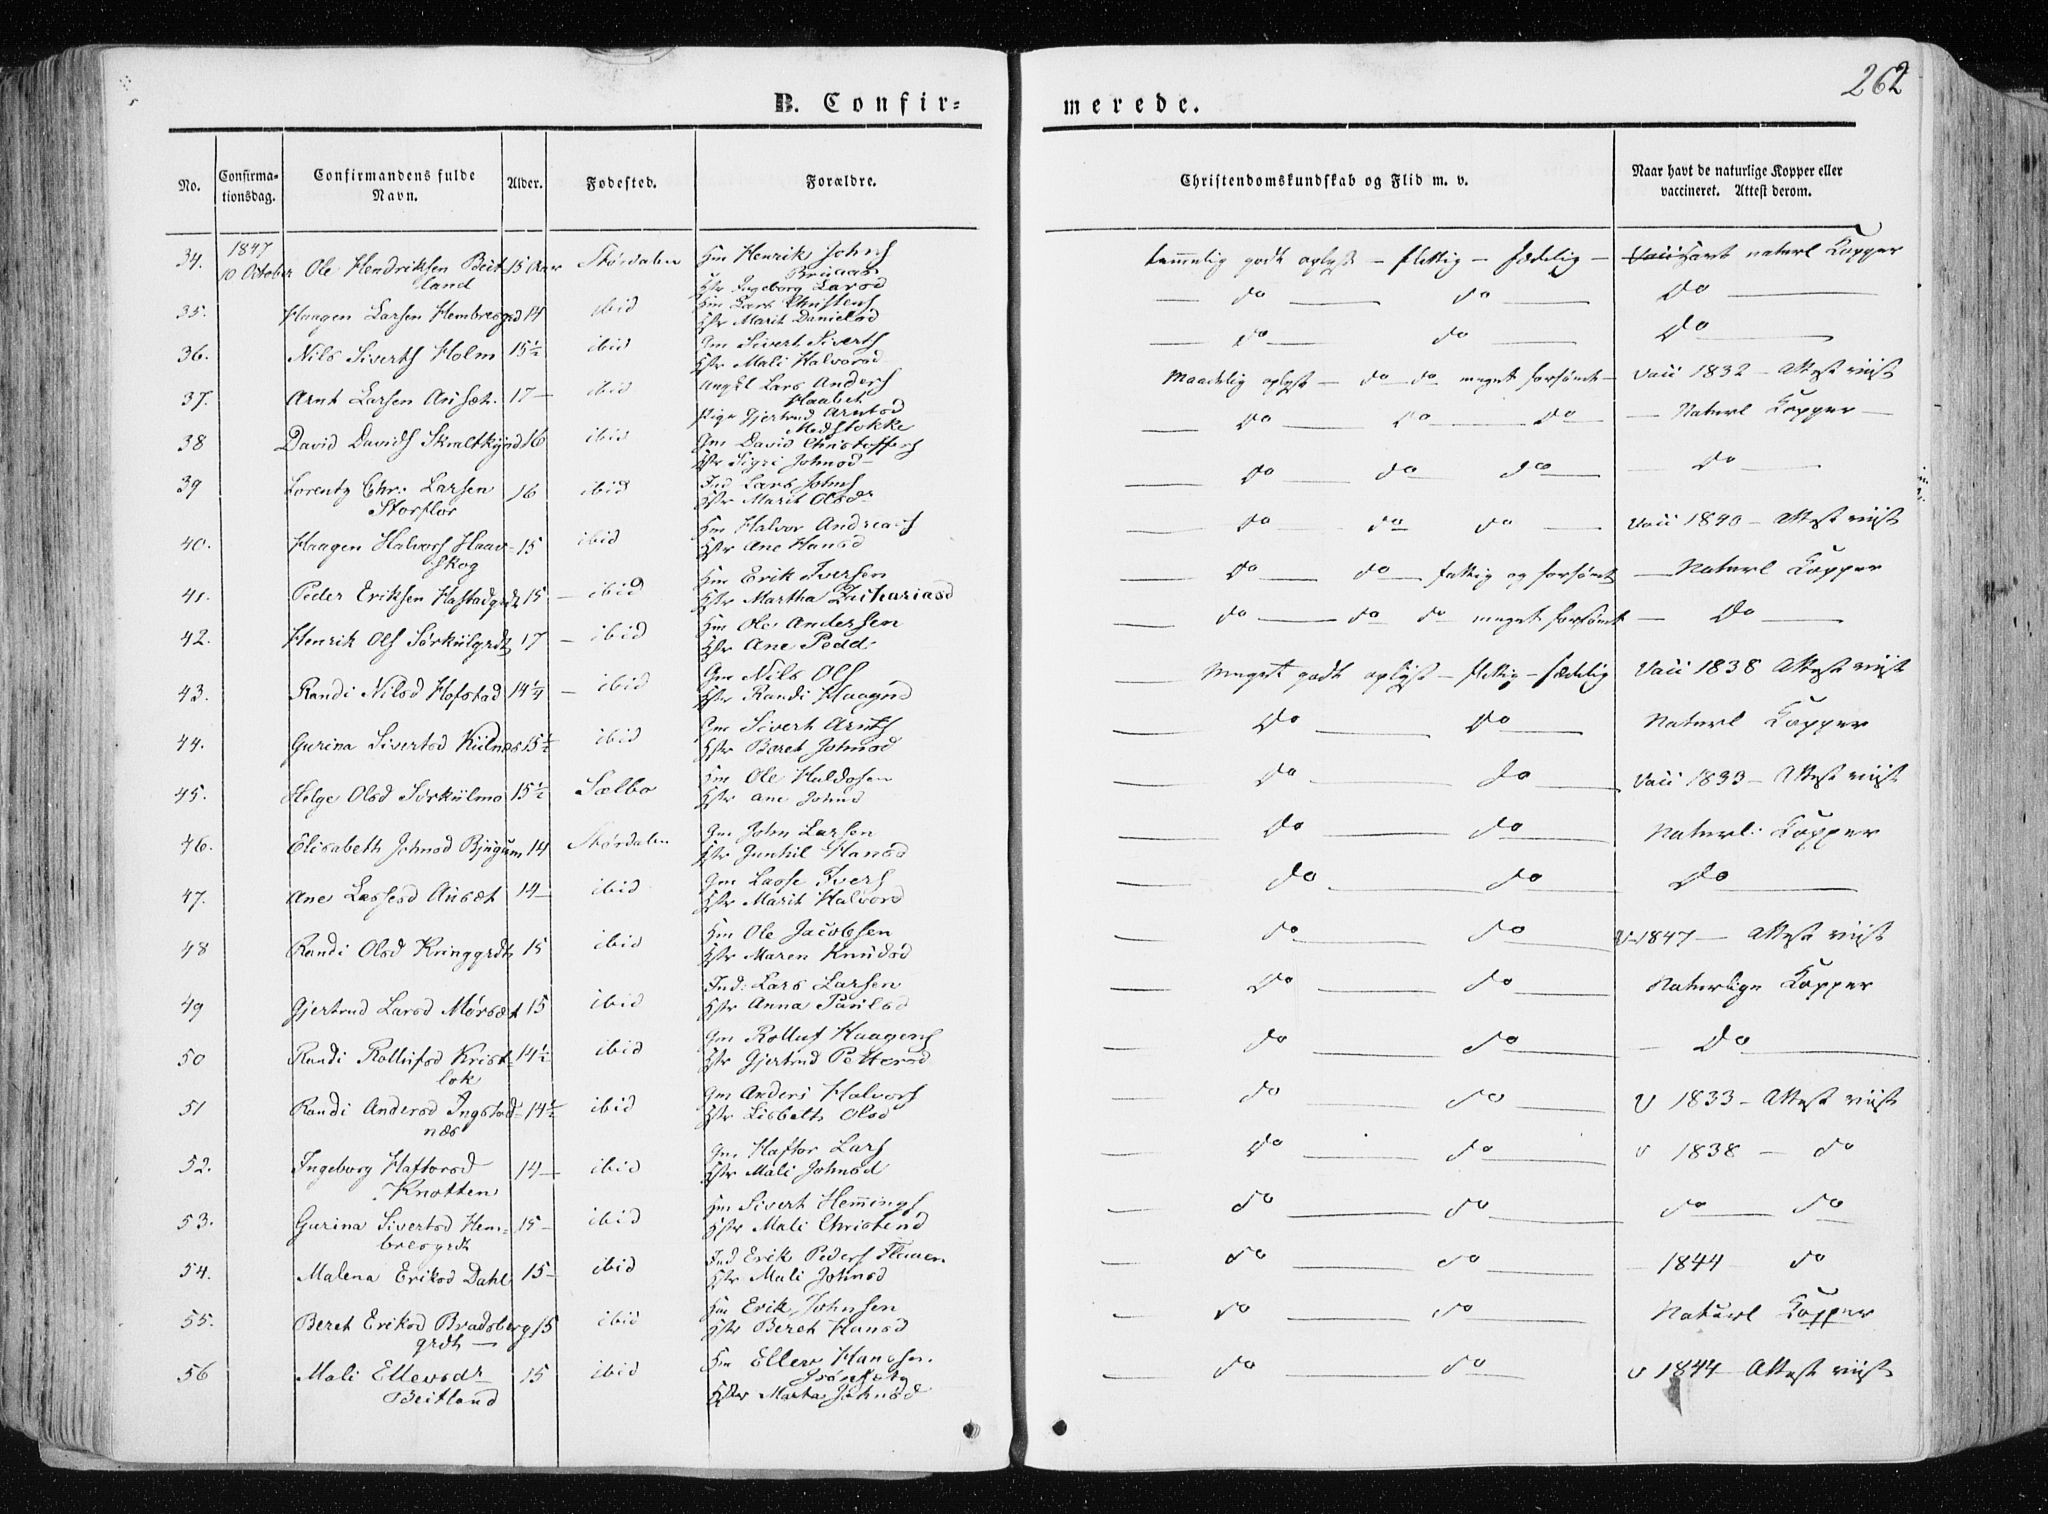 262
B. Confir=
merede.
No.
Confirma-
tionsdag.
Confirmandens fulde
Navn.
Alder.
Fødested.
Forældre.
Christendomskundskab og Flid m. v.
Naar havt de naturlige Kopper eller
vaccineret. Attest derom.
1847
34. 10 October Ole Hendriksen Beit 15 Aar Størdalen Hm Henrik Johns
land
Hstr Ingeborg Larsd
tammelig godt oplyst – flittig – sædelig – havt naturl Kopper
35. Haagen Larsen Hembresgrd 14 ibid Hm Lars Christens
Hstr Marit Danielsd
— do — do — Do —
36. Nils Siverts Holm 15½ ibid Gm Sivert Siverts
Hstr Mali Halvorsd
— do — do — Do —
37. Arnt Larsen Ausæt 17 – ibid Ungkl Lars Anders
Haabet
Pige Gjertrud Arntsd
Medstokke
Maadelig oplyst – do do meget forsømt – Vacc 1832 – Attest viist
38 David Davids Skraltkjnd 16 ibid Gm David Christoffers
Hstr Sigri Johnsd –
— do — do — do — Naturl Kopper —
39 Lorentz Chr: Larsen 16 ibid Ind Lars Johns
Storflor
Hstr Marit Olsdr
— do — do — do — Do —
40. Haagen Halvors Haav- 15 ibid Hm Halvor Andreas
skog
Hstr Ane Hansd
— do — do — do — Vacc 1840 – Attest viist
41. Peder Eriksen Hastadgrdt 15 – ibid Hm Erik Iversen
Hstr Martha Zachariasd
— do — do — fattig og forsømt — Naturl Kopper
42. Henrik Ols Sørkulgrdt 17 – ibid Hm Ole Andersen
Hstr Ane Pedd
— do — do — do meget forsømt — Do —
43. Randi Nilsd Hofstad 14¼ – ibid Gm Nils Ols
Hstr Randi Haagnd
— Meget godt oplyst – flittig – sædelig Vacc 1838 Attest viist
44. Gurina Sivertsd Kiilnes 15½ ibid Gm Sivert Arnts
Hstr Beret Johnsd
— do — do — Naturl Kopper
45. Helge Olsd Sørkulmo 15½ Sælbo Hm Ole Haldosen
Hstr Ane Johnsd
— do — do Vacc 1833 – Attest viist
46. Elisabeth Johnsd Bjugum 14 Størdalen Gm John Larsen
Hstr Gunhil Hansd
— do — do — Naturl: Kopper
47. Ane Lassesd Ausæt 14 – ibid Gm Lasse Ivers
Hstr Marit Halvord
— do — do — Do —
48 Randi Olsd Kringgrdt 15 ibid Hm Ole Jacobsen
Hstr Maren Knudsd
— do — do — V 1847 – Attest viist
49 Gjertrud Larsd Mørsæt 15 ibid Ind: Lars Larsen
Hstr Anna Paulsd
— do — do — Naturlige Kopper
50 Randi Rollufsd Krist- 14½ ibid Gm Rolluf Haagens
lok
Hstr Gjertrud Pettersd
— do — do — Do —
51 Randi Andersd Ingstad- 14½ ibid Gm Anders Halvors
næs
Hstr Lisbeth Olsd
— do — do — V 1833 – Attest viist
52. Ingeborg Haftorsd 14 – ibid Gm Haftor Lars
Knotten
Hstr Mali Johnsd
— do — do — v 1838 – do
53. Gurina Sivertsd Hem- 15 – ibid Hm Sivert Hemmings
bresgrdt
Hstr Mali Christend
— do — do — do — do
54. Malena Eriksd Dahl 15 – ibid Ind Erik Peders
Hstr Mali Johnsd
— do — do — 1844 do
55. Beret Eriksd Bradsberg 15 ibid Hm Erik Johnsen
grdt —
Hstr Beret Hansd
— do — do — Naturl Kopper
56 Mali Ellevsdr 15 ibid Hm Ellev Hansen
Beitland
Hstr Marta Johnsd
— do — do — v 1844 – Attest viist